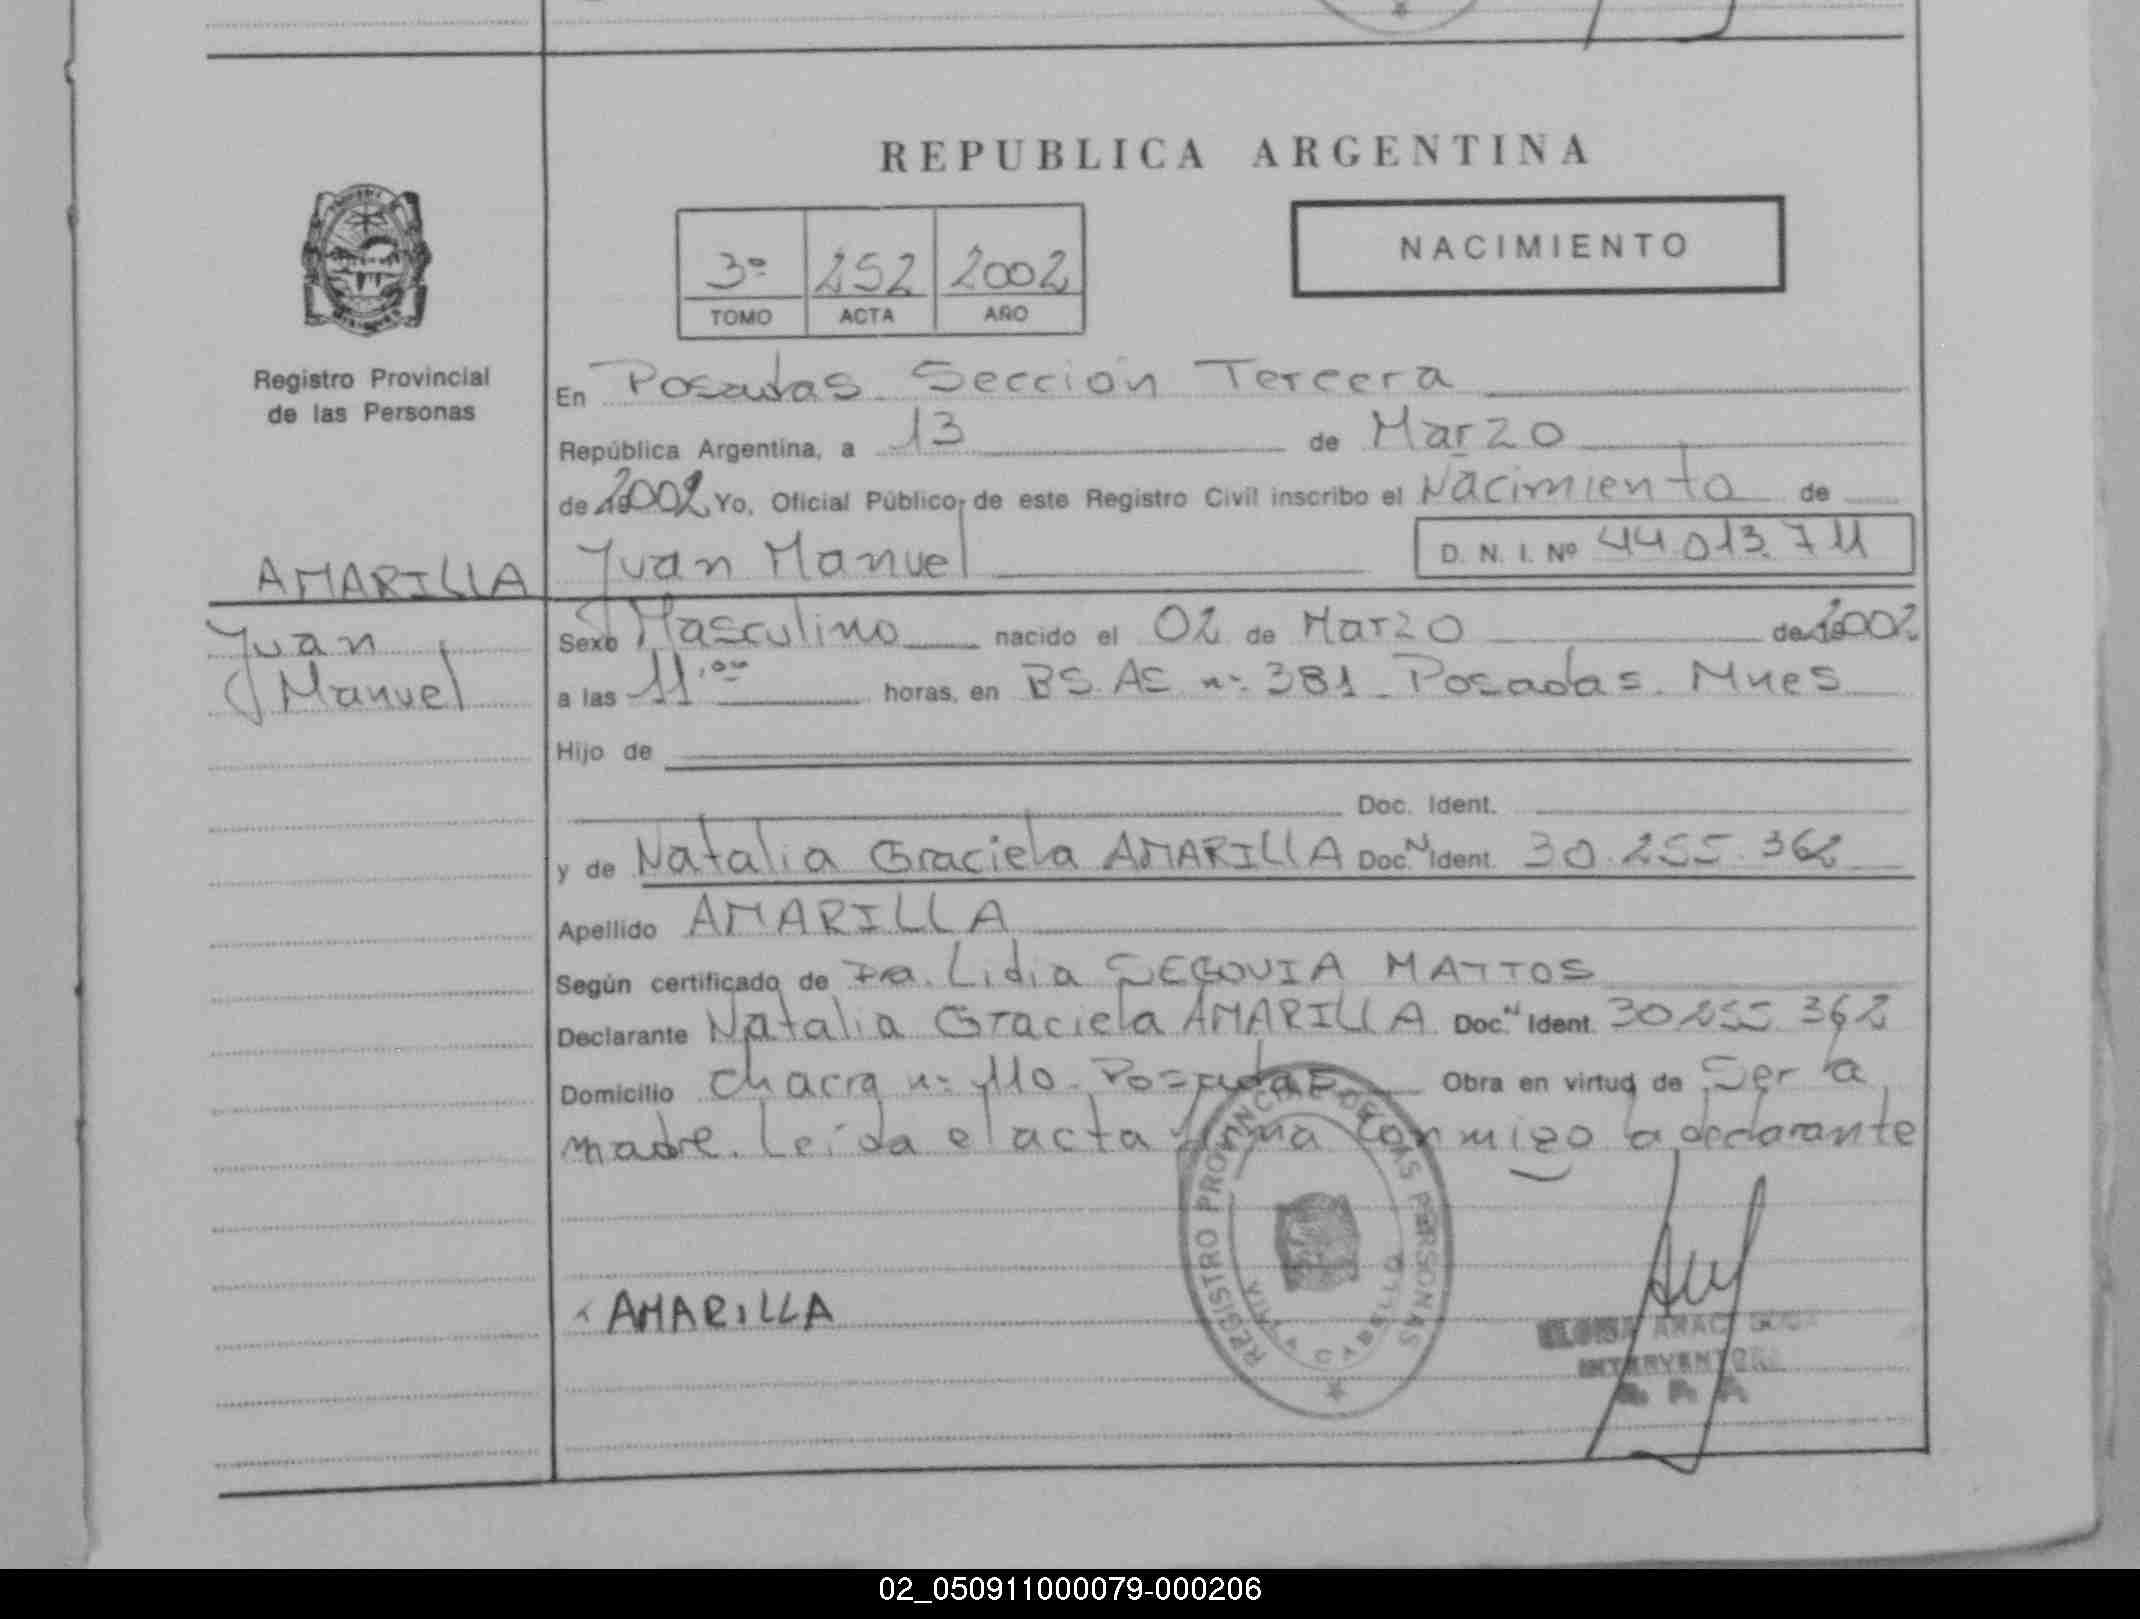 REPUBLICA ARGENTINA
NACIMIENTO
3º 252 2002
TOMO ACTA AÑO
Registro Provincial
de las Personas
En Posadas Sección Tercera
República Argentina, a 13 de Marzo
de 2002 Yo, Oficial Público de este Registro Civil inscribo el Nacimiento de
AMARILLA Juan Manuel D. N. I. Nº 44.013.711
Juan
Manuel
Sexo Masculino nacido el 02 de Marzo de 2002
a las 11,oo horas, en BS. AS nº 381 Posadas. Mnes
Hijo de
Doc. Ident.
y de Natalia Graciela AMARILLA Doc.N Ident. 30.255.362
Apellido AMARILLA
Según certificado de Dra. Lidia SEGOVIA MATTOS
Declarante Natalia Graciela AMARILLA Doc.N Ident. 30.255.362
Domicilio chacra nº 110 Posadas Obra en virtud de Ser la
madre. Leída el acta firma conmigo la declarante
REGISTRO PROVINCIAL DE LAS PERSONAS
CABELLO
AMARILLA
INTERVENTORA
02_050911000079-000206